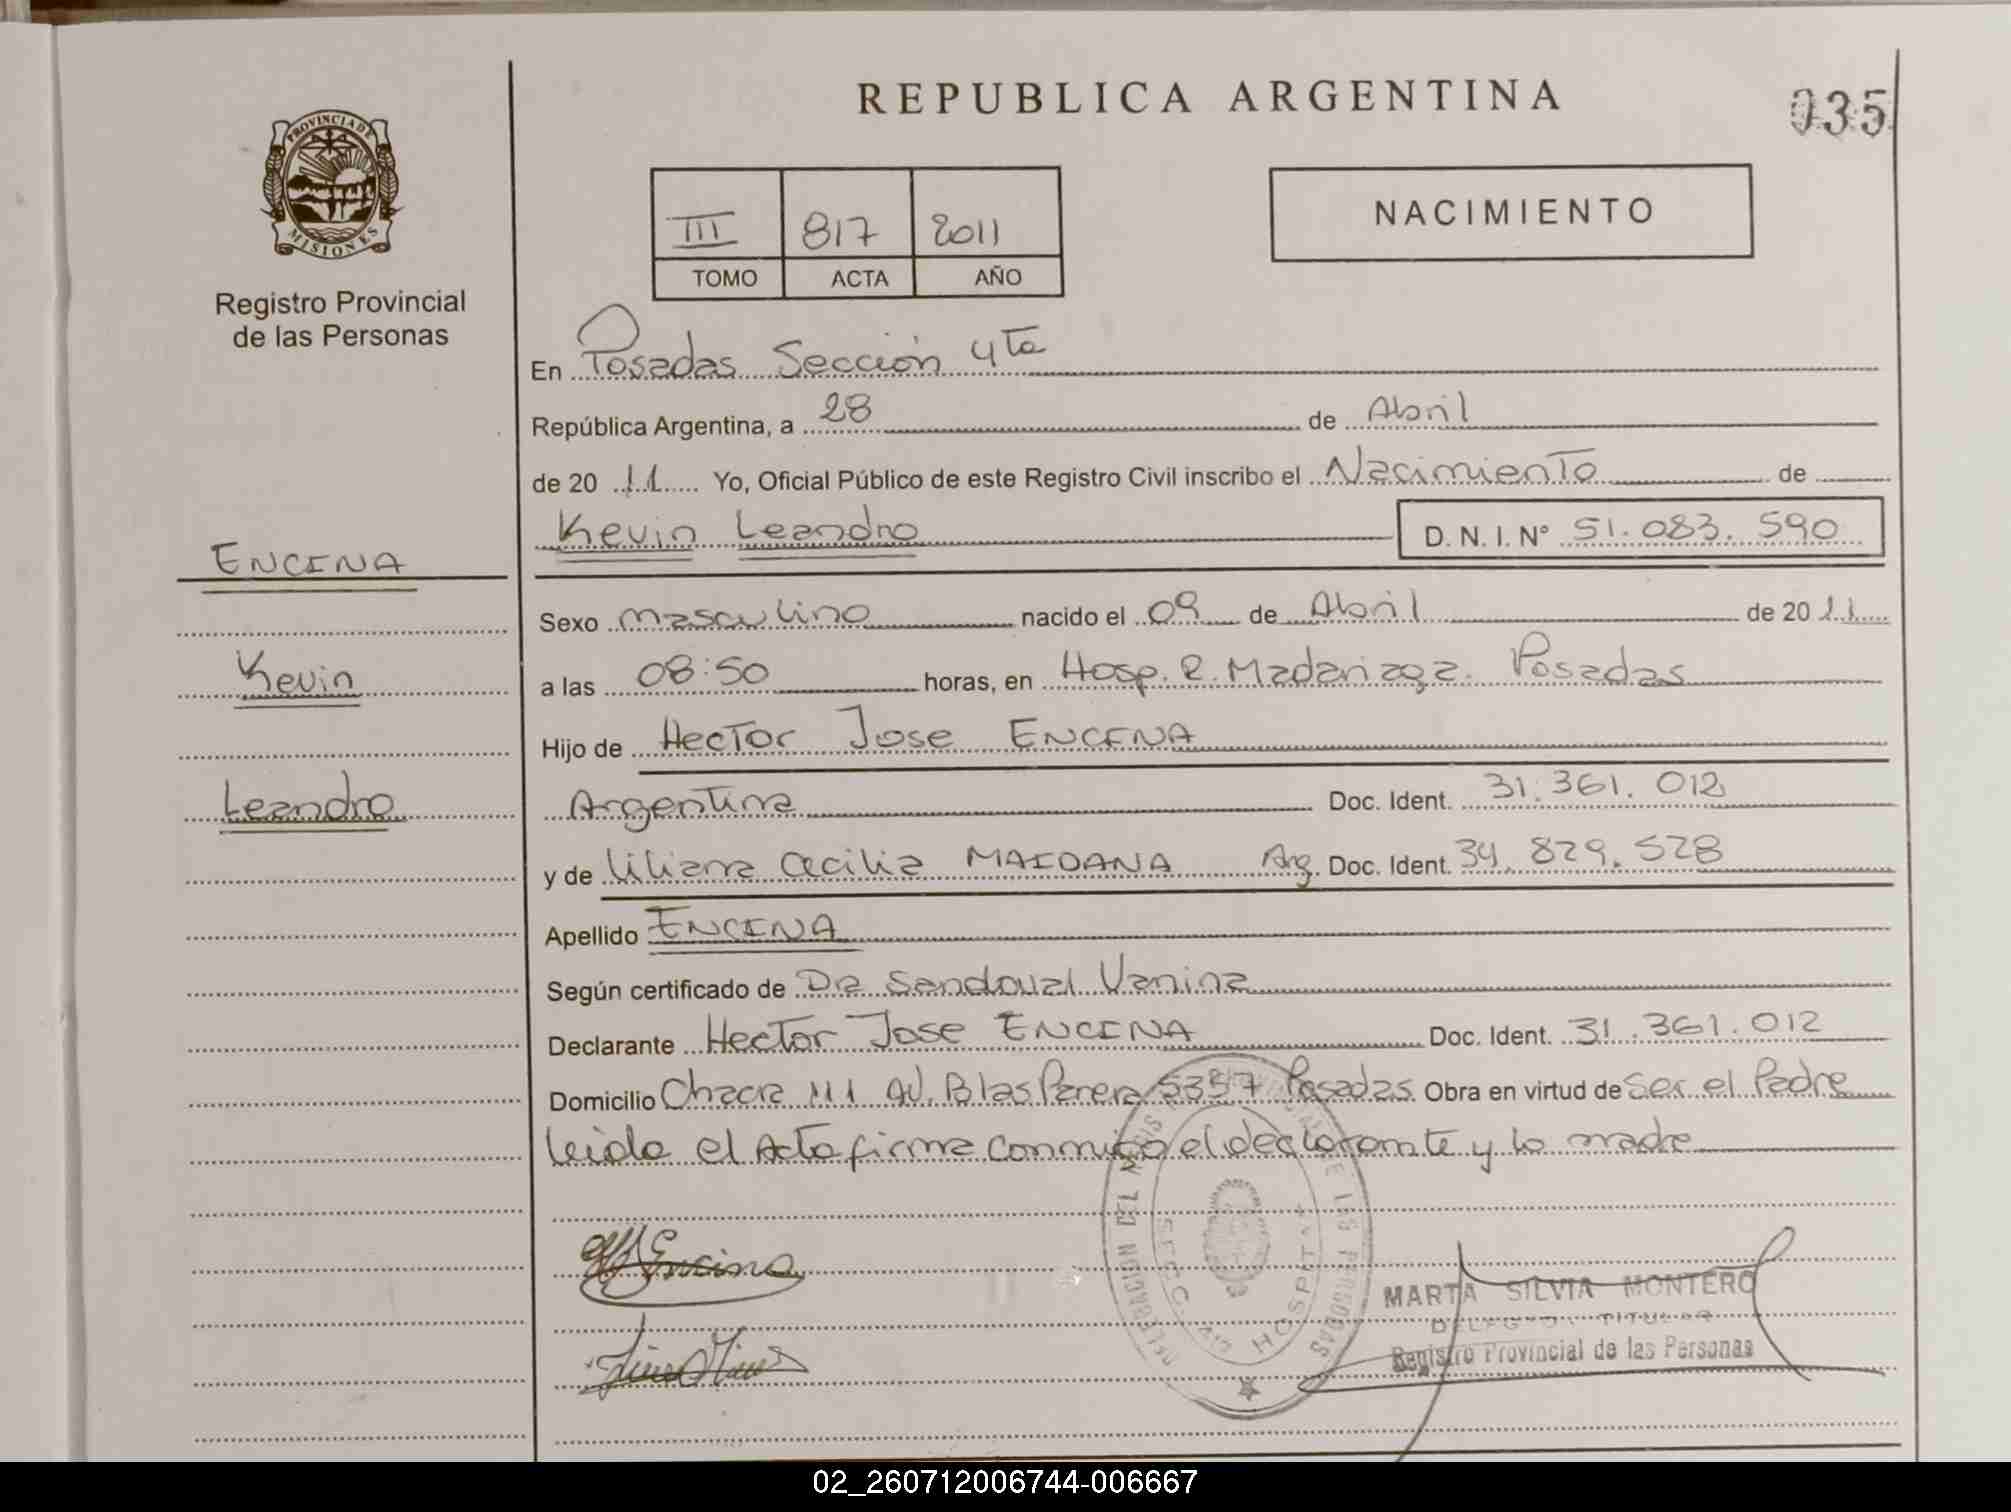 REPUBLICA ARGENTINA
035
PROVINCIA DE
MISIONES
Registro Provincial
de las Personas
III 817 2011
TOMO ACTA AÑO
NACIMIENTO
En Posadas Sección 4ta
República Argentina, a 28 de Abril
de 20 11 Yo, Oficial Público de este Registro Civil inscribo el Nacimiento de
Kevin Leandro D. N. I. N° 51.083.590
ENCINA
Kevin
Leandro
Sexo masculino nacido el 09 de Abril de 20 11
a las 08:50 horas, en Hosp. R. Madariaga. Posadas
Hijo de Hector Jose ENCINA
Argentina Doc. Ident. 31.361.012
y de Liliana Cecilia MAIDANA Arg. Doc. Ident. 34.829.528
Apellido ENCINA
Según certificado de Dra Sandoval Vanina
Declarante Hector Jose ENCINA Doc. Ident. 31.361.012
Domicilio Chacra 111 Av. Blas Parera 5357 Posadas Obra en virtud de Ser el Padre
leida el Acta firma conmigo el declarante y la madre
Encina
MARTA SILVIA MONTERO
DELEGADA TITULAR
Registro Provincial de las Personas
DE LAS PERSONAS
HOSPITAL
02_260712006744-006667